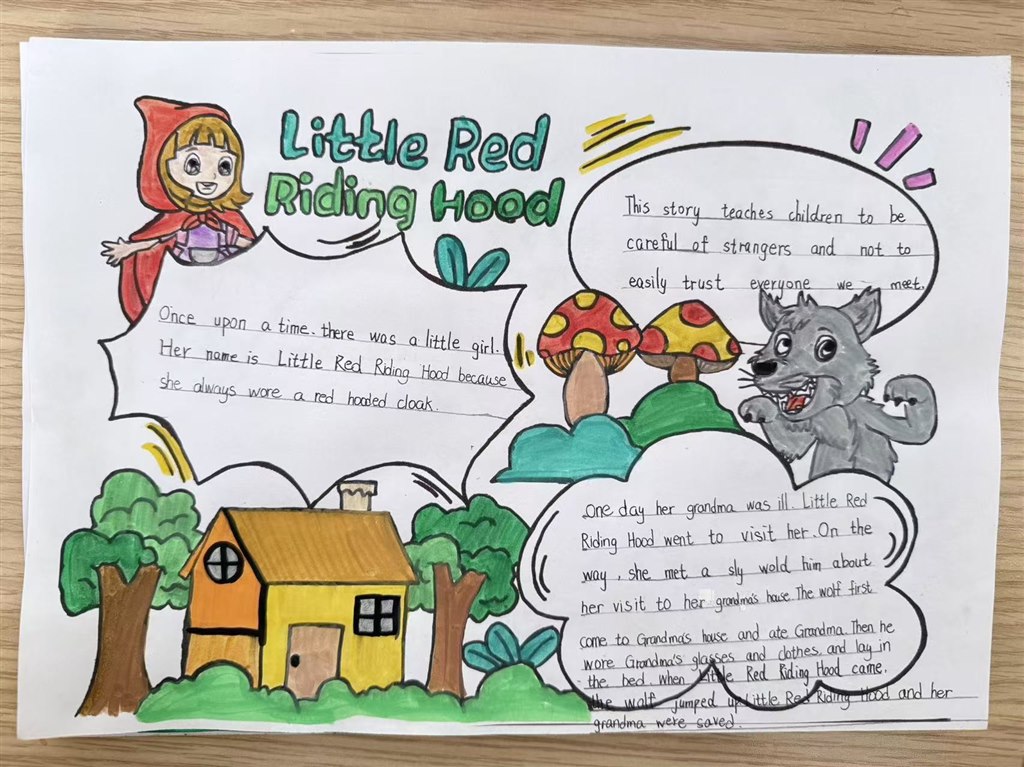 Little Red
Riding Hood
This story teaches children to be
careful of strangers and not to
easily trust everyone we meet.
Once upon a time. there was a little girl.
Her name is Little Red Riding Hood because
she always wore a red hooded cloak.
One day her grandma was ill. Little Red
Riding Hood went to visit her. On the
way, she met a sly wold him about
her visit to her grandma's house. The wolf first
come to Grandma's house and ate Grandma. Then he
wore Grandma's glasses and clothes. and lay in
the bed. when Little Red Riding Hood came.
the wolf jumped up. Little Red Riding Hood and her
grandma were saved.